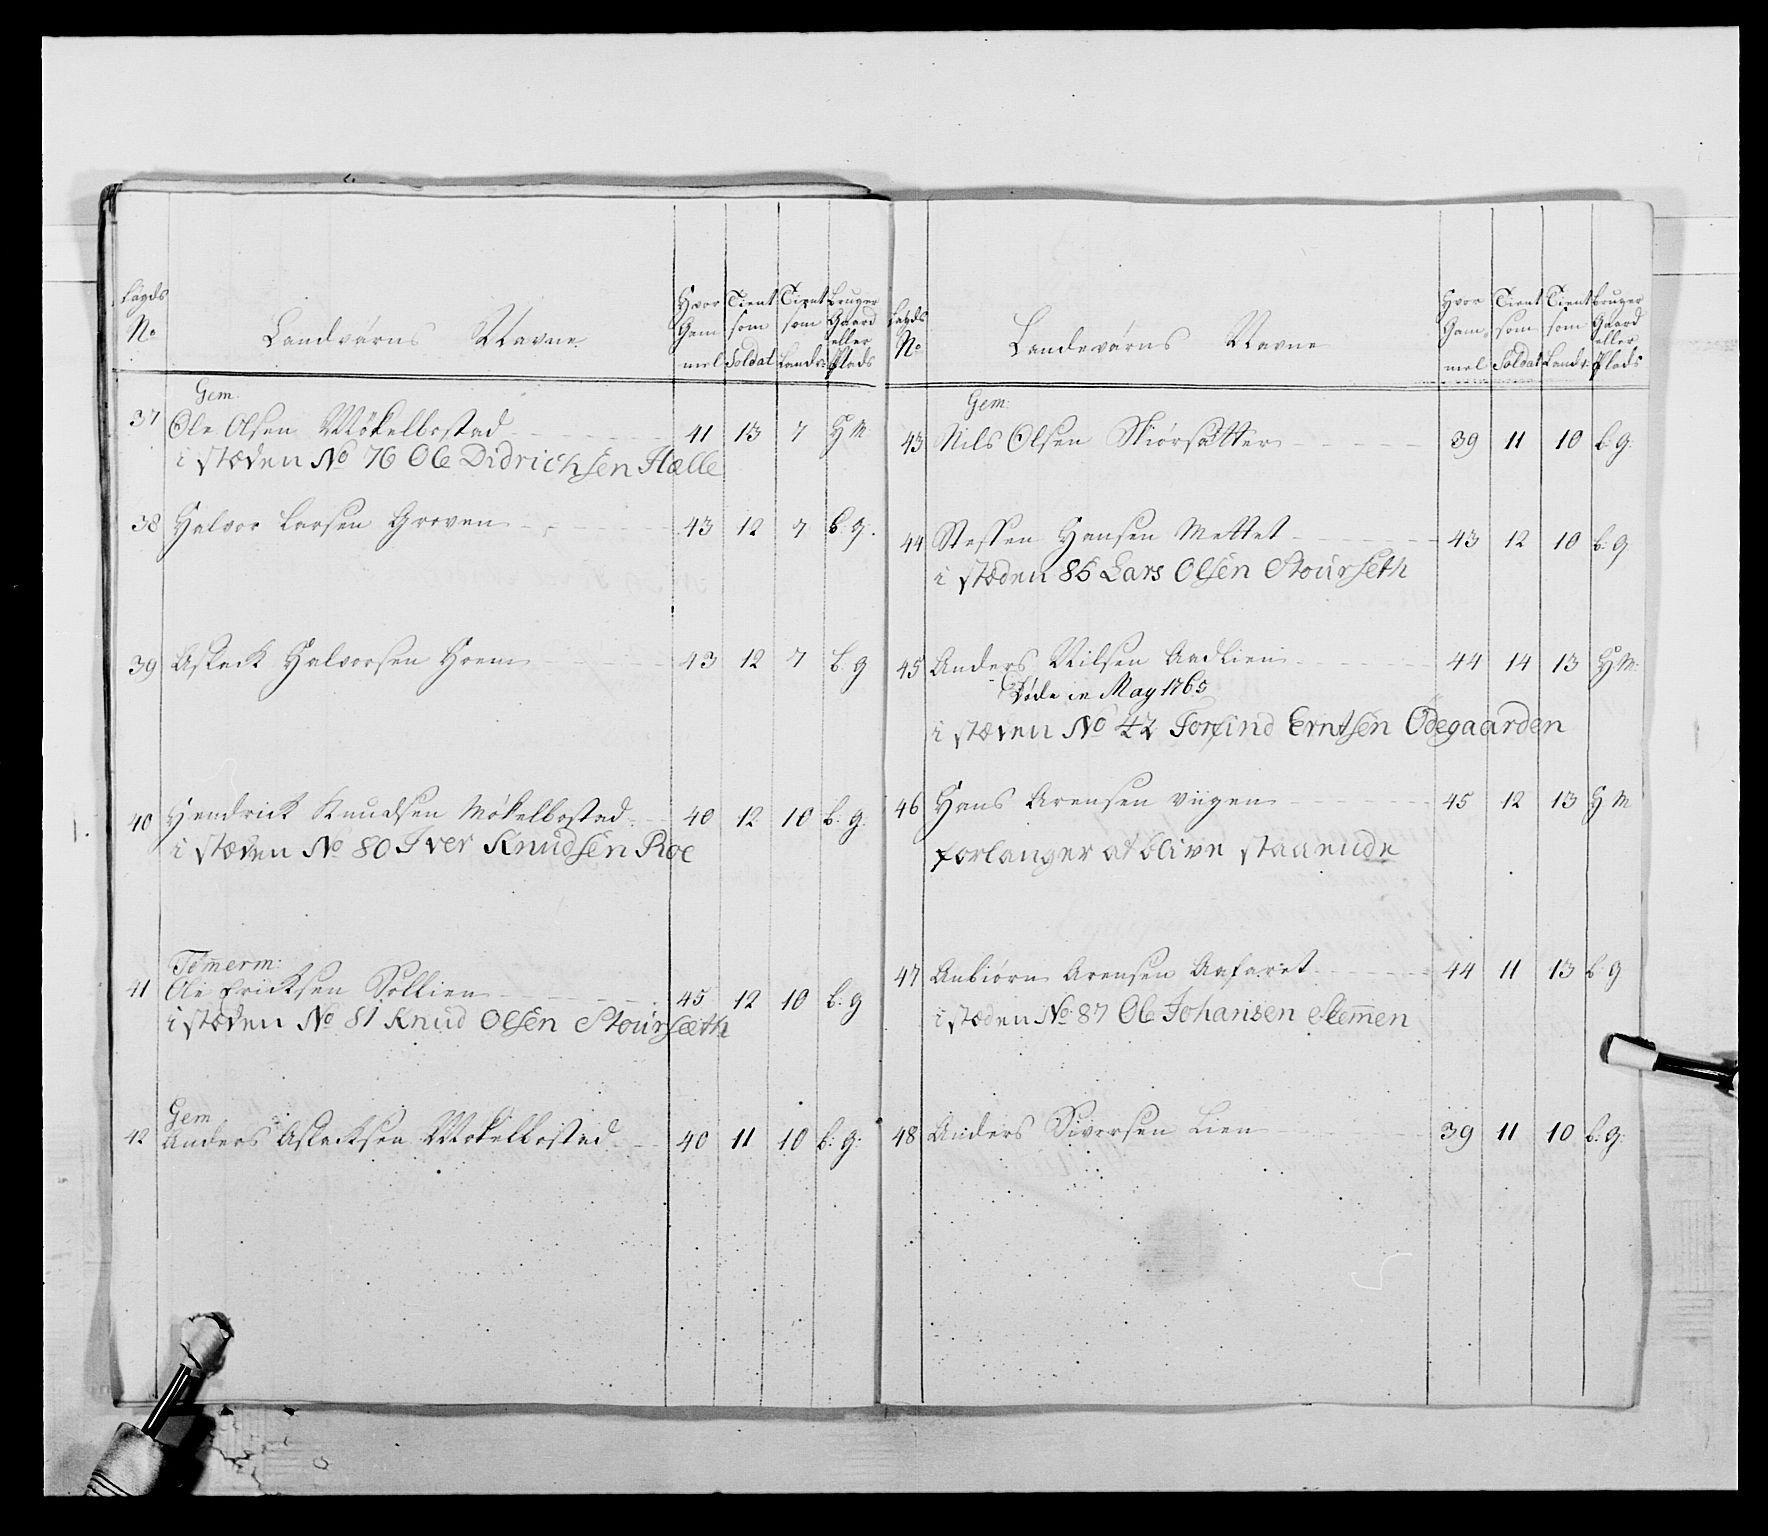 Lægds No
Landværns Navne
Hvor Gam mel
Tient som Soldat
Tient som Landv:
Bruger Gaard eller Plads
Gem:
37 Ole Olsen Mökelbostad 41 13 7 H M
i stæden No 76 Ole Didrichsen Hælle
38 Halvor Larsen Groven 43 12 7 b. g.
39 Aslack Halvorsen Hoem 43 12 7 b. g
40 Hendrick Knudsen Mökelbostad 40 12 10 b. g.
i stæden No 80 Iver Knudsen Roe
Tömerm:
41 Ole Ericksen Sollien 45 12 10 b. g
i stæden No 81 Knud Olsen Stoursæth
Gem
42 Anders Aslacksen Mökelbostad 40 11 10 b: g:
Lægds No
Landeværns Navne
Hvor Gam mel
Tient som Soldat
Tient som Landv:
Bruger Gaard eller Plads
Gem:
43 Nils Olsen Skiörsætter 39 11 10 b. g.
44 Steffen Hansen Mettet 43 12 10 b. g
i stæden 85 Lars Olsen Stourseth
45 Anders Nilsen Aadlien 44 14 13 H M:
Döde in May 1765
i stæden No 42 Erntsen Ödegaarden
46 Hans Arensen Viigen 45 12 13 H M
forlanger at blive staaende
47 Anbiörn Arensen Aafaret 44 11 13 b. g
i stæden No 87 Ole Johansen Slemen
48 Anders Siversen Lien 39 11 10 b. g: